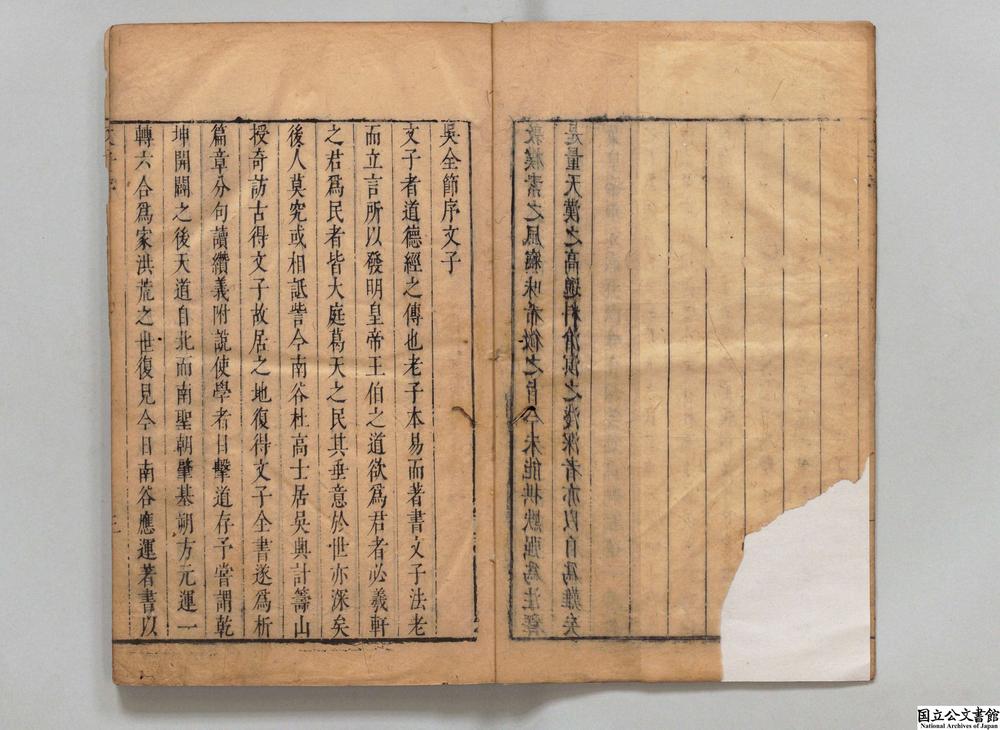 敦樸素之風味希微之旨今未能拱默強為注釋
是量天漢之高遠料滄溟之淺深者亦以自為難矣
吳全節序文子
文子者道德經之傳也老子本易而著書文子法老
而立言所以發明皇帝王伯之道欲爲君者必羲軒
之君爲民者皆大庭葛天之民其垂意於世亦深矣
後人莫究或相詆訾今南谷杜高士居吳興計籌山
授奇訪古得文子故居之地復得文子全書遂爲析
篇章分句讀纘義附說使學者目擊道存予嘗謂乾
坤開闢之後天道自北而南聖朝肇基朔方元運一
轉六合爲家洪荒之世復見今日南谷應運著書以
国立公文書館
National Archives of Japan